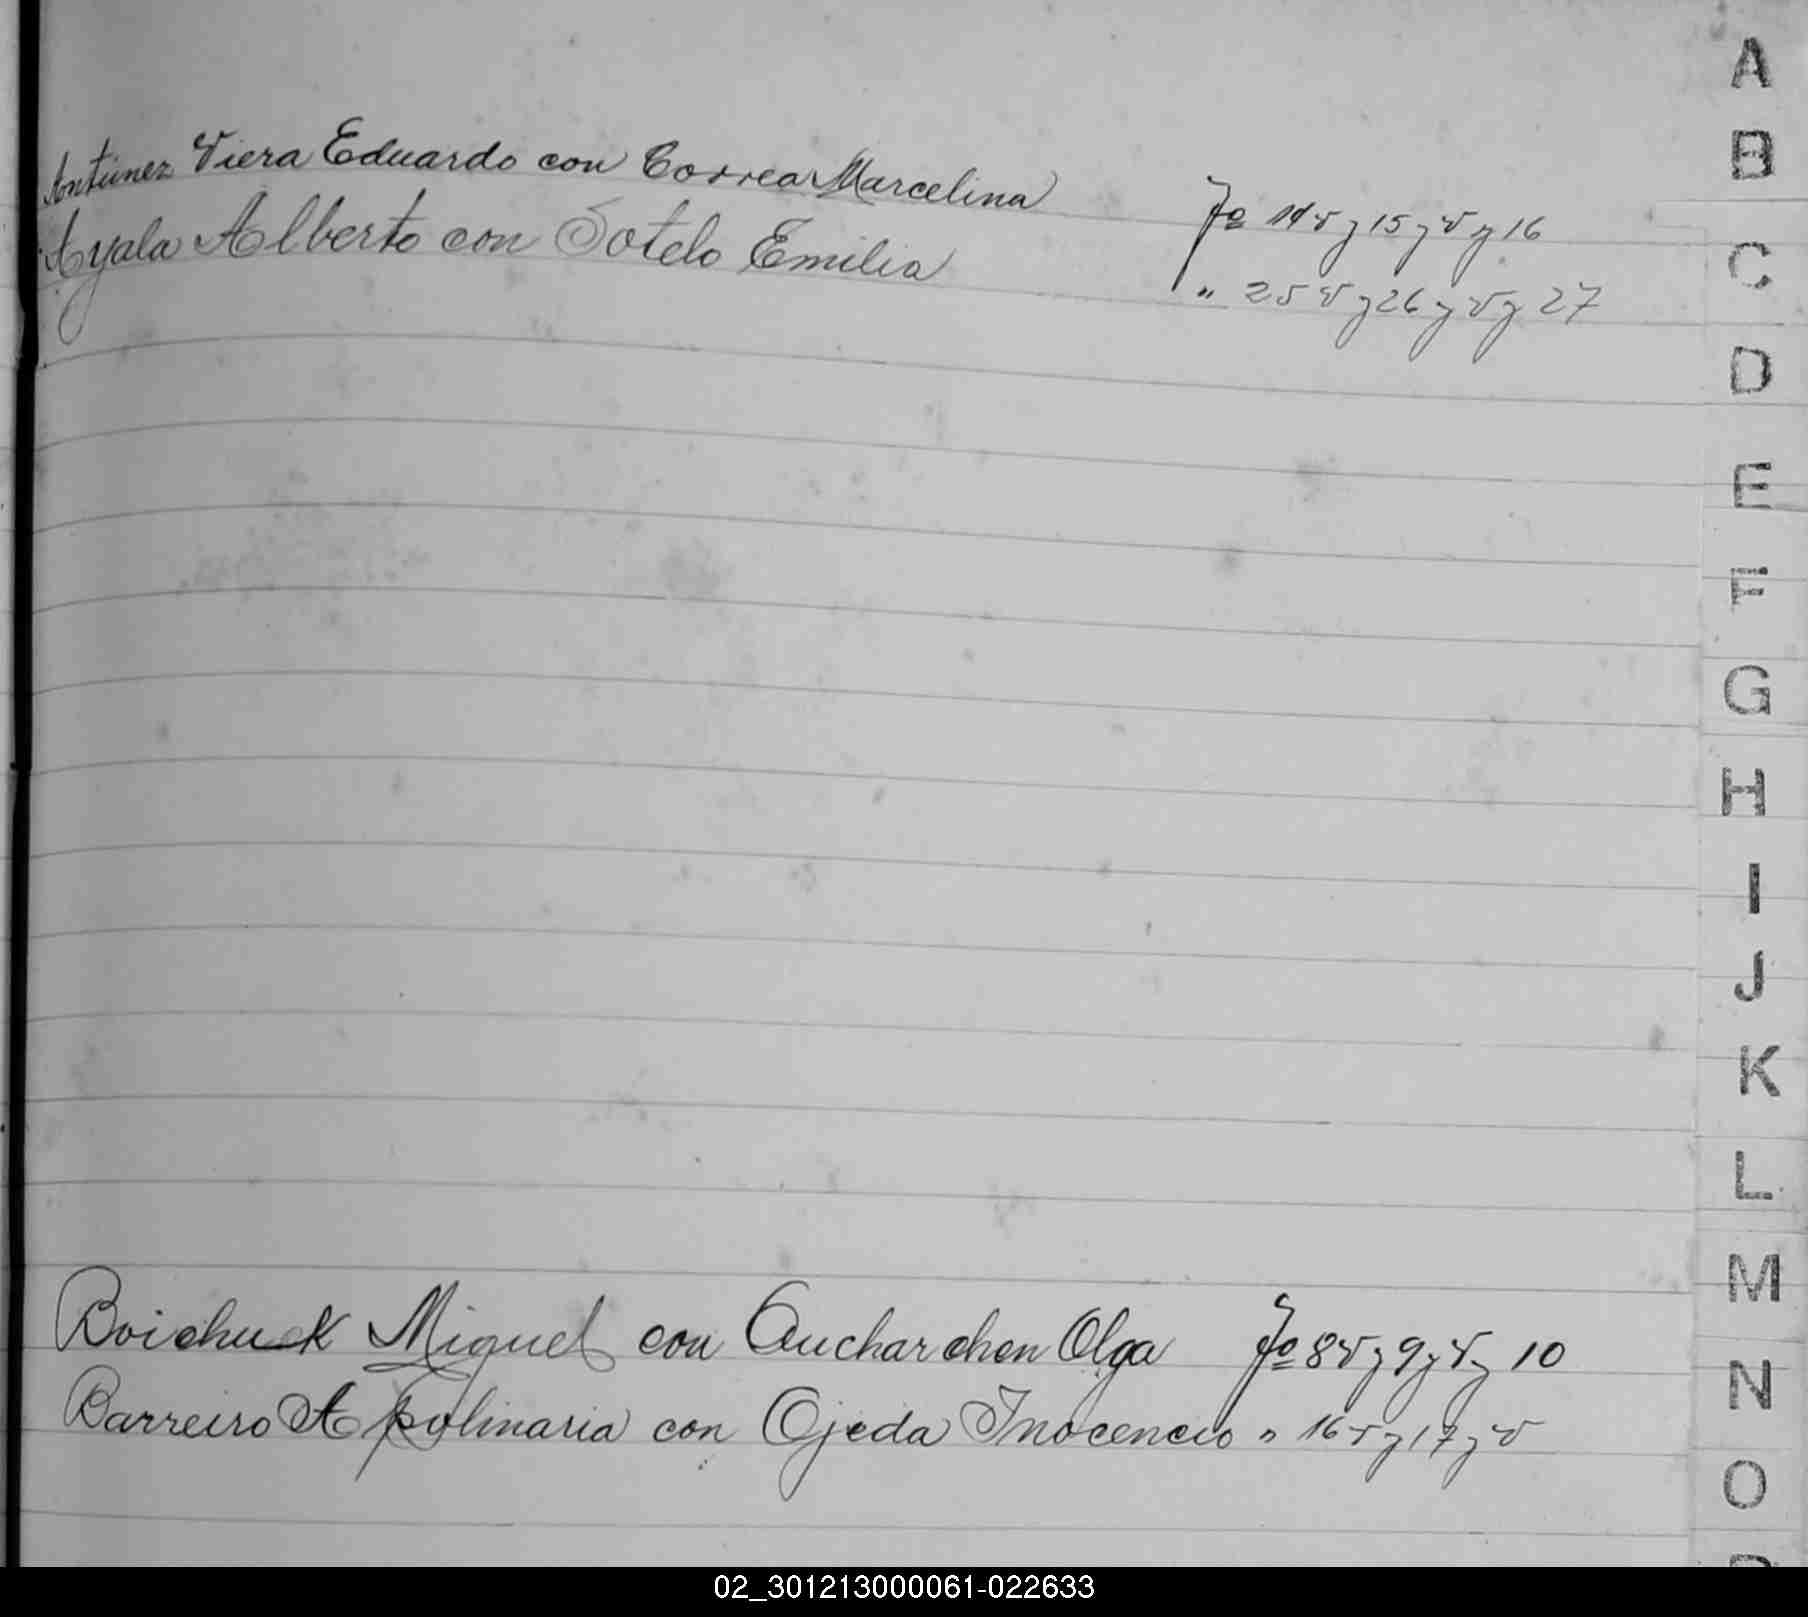 A
B
Antúnez Viera Eduardo con Correa Marcelina Fo 14 v y 15 y v y 16
C
Ayala Alberto con Sotelo Emilia " 25 v y 26 y v y 27
D
E
F
G
H
I
J
K
L
M
Boichuck Miguel con Olga Fo 8 v y 9 y v y 10
N
Barreiro Apolinaria con Ojeda Inocencio " 16 v y 17 y v
O
02_301213000061-022633